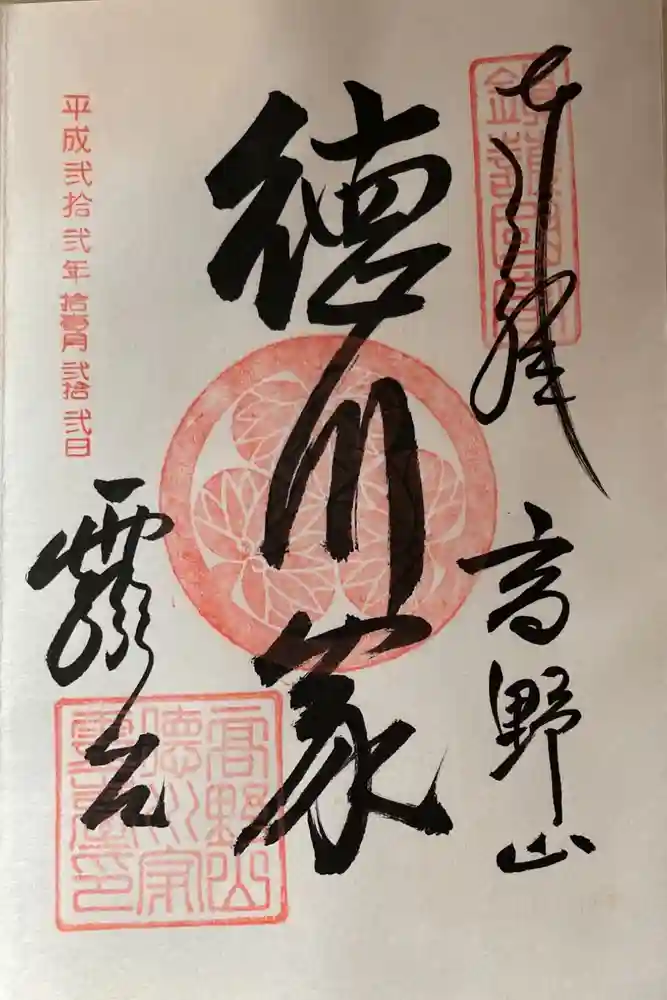 奉拝
高野山
徳川家
霊台
平成弐拾弐年拾壱月弐拾弐日
高野山
徳川家
霊臺印